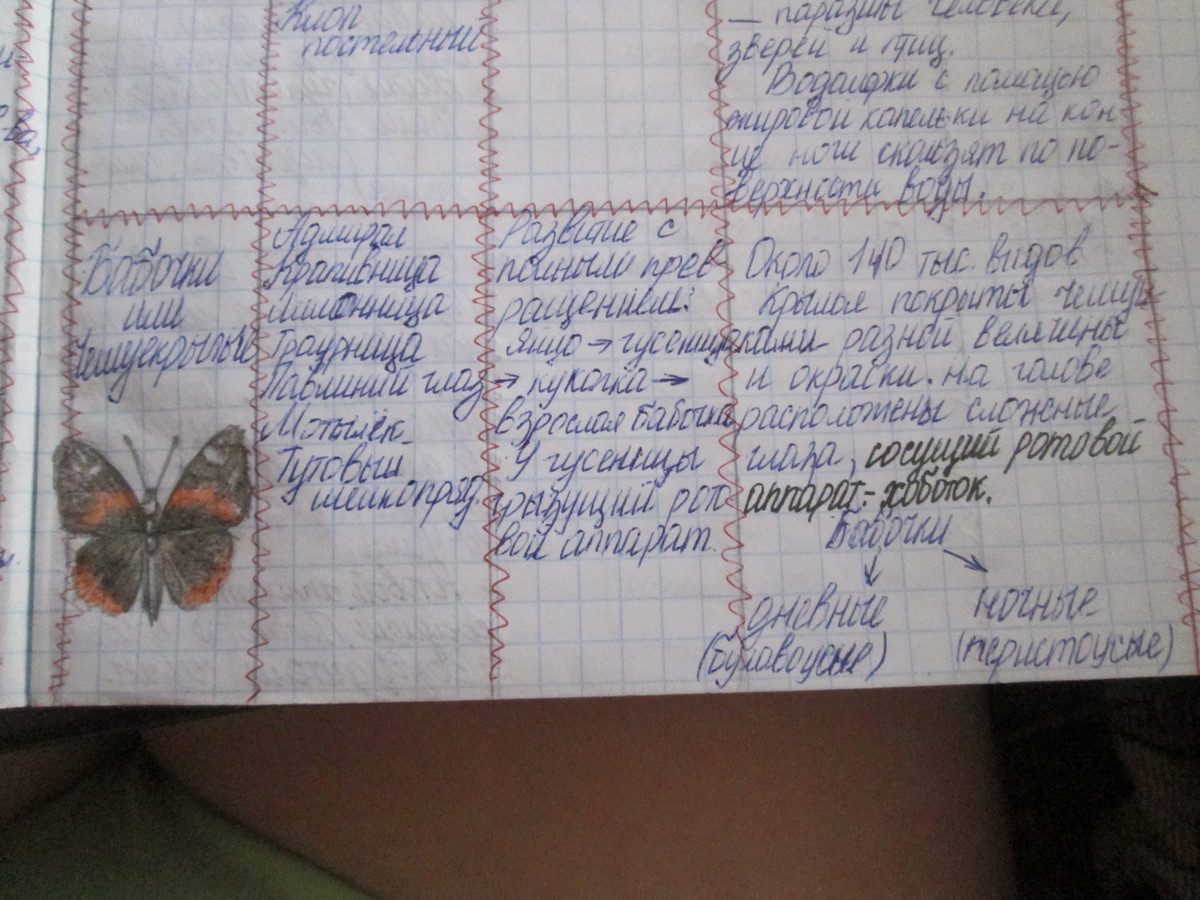 Клоп
постельный
— паразиты человека,
зверей и птиц.
Водомерки с помощью
жировой капельки на кон-
це ноги скользят по по-
верхности воды.
Бабочки
или
Чешуекрылые
Адмирал
Крапивница
Лимонница
Траурница
Павлиний глаз
Мотылёк
Тутовый
шелкопряд
Развитие с
полным прев
ращением:
Яйцо → гусеница
→ куколка →
взрослая бабочка
У гусеницы
грызущий рот
вой аппарат.
Около 140 тыс. видов
Крылья покрыты чешуй-
ками разной величины
и окраски. На голове
расположены сложные
глаза, сосущий ротовой
аппарат - хоботок.
Бабочки
дневные ночные
(булавоусые) (перистоусые)